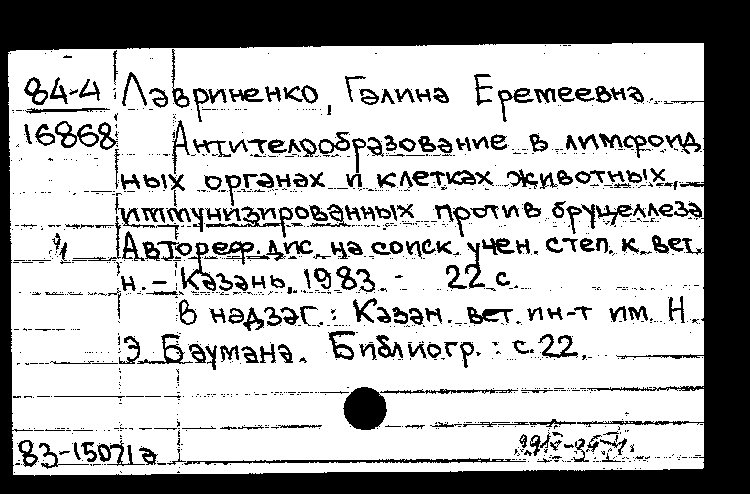 84-4 Лавриненко, Галина Еремеевна.
16868 Антителообразование в лимфоид
ных органах и клетках животных,
иммунизированных против бруцеллеза
Автореф. дис. на соиск. учен. степ. к. вет.
н. - Казань, 1983 - 22 с.
В надзаг.: Казан. вет. ин-т им. Н.
Э. Баумана. Библиогр.: с. 22.
83-15071а